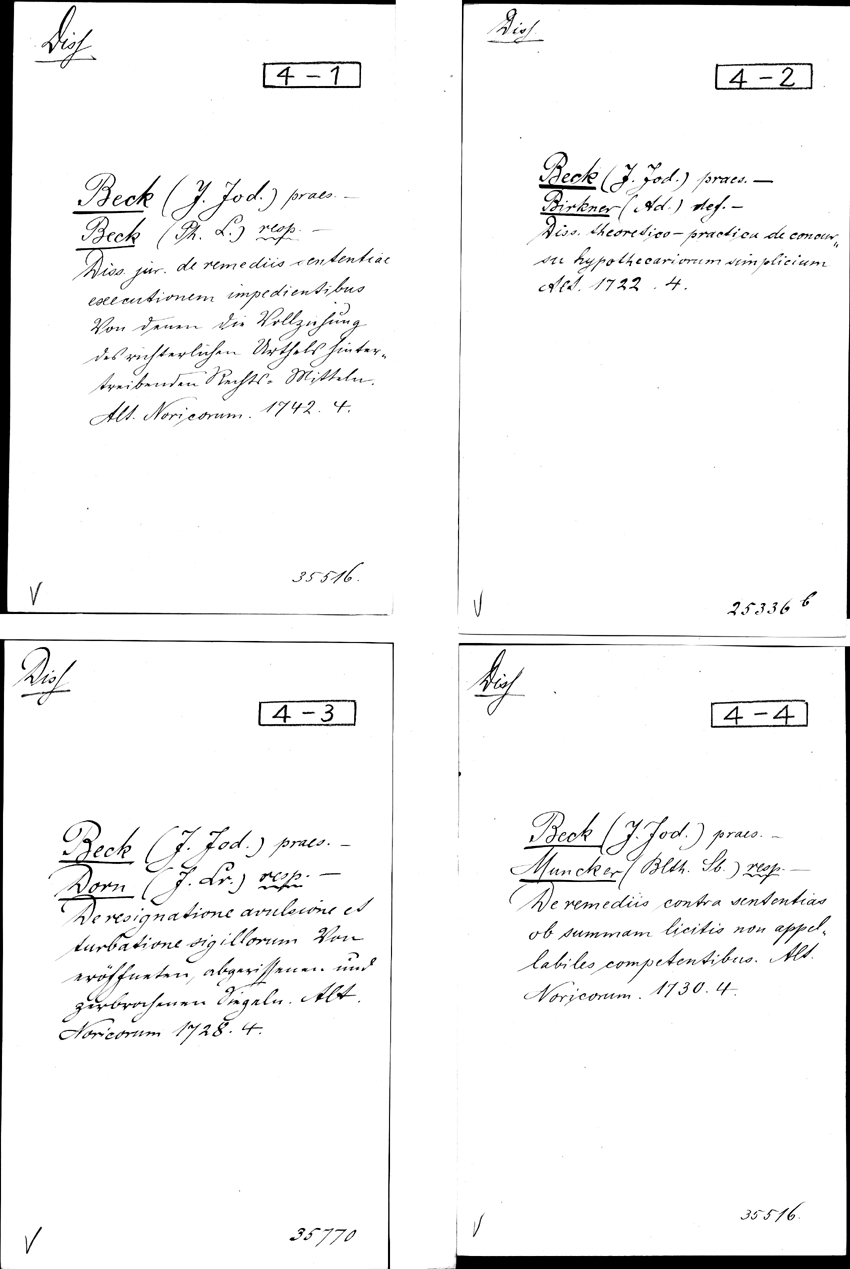 Diss
4-1
Beck (J. Jod.) praes. —
Beck (Ph. L.) resp. —
Diss. jur. de remediis sententiae
executionem impedientibus
Von denen die Vollziehung
des richterlichen Urthels hinter-
treibenden Rechts-Mitteln.
Alt. Noricorum. 1742. 4.
35516.
V
Diss.
4-2
Beck (J. Jod.) praes. —
Birkner (Ad.) def. —
Diss. theoretico-practica de concur-
su hypothecariorum simplicium
Alt. 1722. 4.
25336 b
V
Diss
4-3
Beck (J. Jod.) praes. —
Dorn (J. Lr.) resp. —
De resignatione avulsione et
turbatione sigillorum Von
eröffneten, abgerissenen und
zerbrochenen Siegeln. Alt.
Noricorum 1728. 4.
35770
V
Diss
4-4
Beck (J. Jod.) praes. —
Muncker (Blth. Sb.) resp. —
De remediis contra sententias
ob summam licitis non appel-
labiles competentibus. Alt.
Noricorum. 1730. 4.
35516.
V